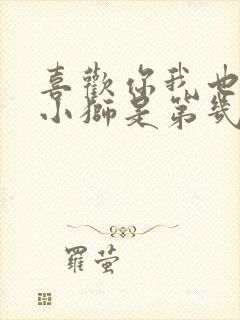 喜歡你我也
小獅是第幾
羅螢